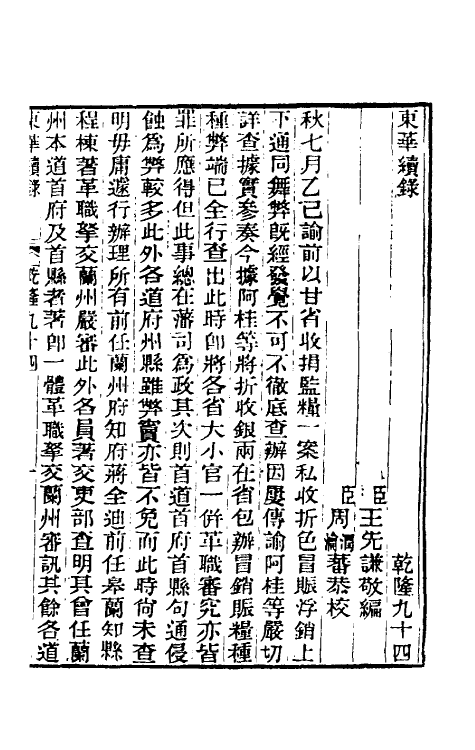 東華續錄 乾隆九十四
臣王先謙敬編
臣周潤蕃瀹蕃恭校
秋七月乙巳諭前以甘省收捐監糧一案私收折色冒賑浮銷上
下通同舞弊旣經發覺不可不徹底查辦因屢傳諭阿桂等嚴切
詳查據實參奏今據阿桂等將折收銀兩在省包辦冒銷賑糧種
種弊端已全行查出此時卽將各省大小官一併革職審究亦皆
罪所應得但此事總在藩司爲政其次則首道首府首縣句通侵
蝕爲弊較多此外各道府州縣雖弊竇亦皆不免而此時尙未查
明毋庸遽行辦理所有前任蘭州府知府蔣全迪前任皋蘭知縣
程棟著革職拏交蘭州嚴審此外各員著交吏部查明其曾任蘭
州本道首府及首縣者著卽一體革職拏交蘭州審訊其餘各道
東華續錄 乾隆九十四 一